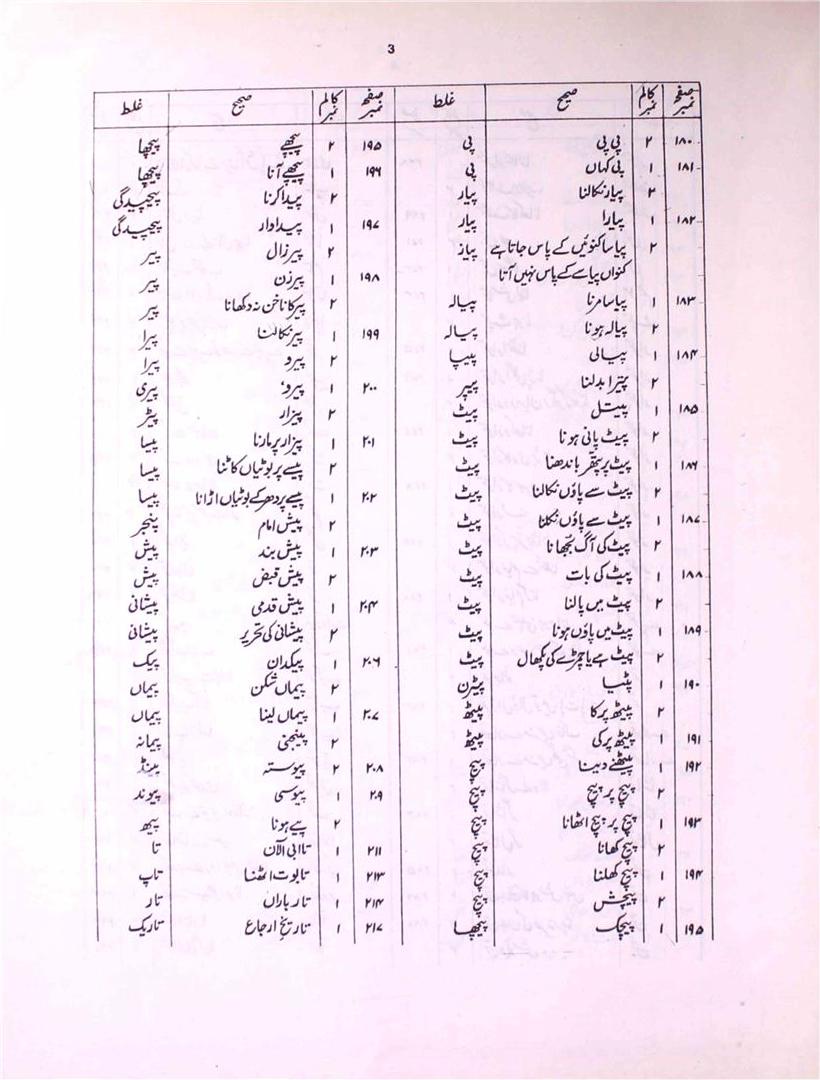 3
صفحہ نمبر کالم نمبر صحیح غلط صفحہ نمبر کالم نمبر صحیح غلط
۱۸۰ ۲ پی پی پی ۱۹۵ ۲ پیچھے پیچھا
۱۸۱ ۱ پی کہاں پی ۱۹۶ ۱ پیچھے آنا پیچھا
۲ پیار نکالنا پیار ۲ پیدا کرنا پیچیدگی
۱۸۲ ۱ پیارا پیار ۱۹۷ ۱ پیداوار پیچیدگی
۲ پیاسا کنوئیں کے پاس جاتا ہے پیاز ۲ پیر زال پیر
کنواں پیاسے کے پاس نہیں آتا ۱۹۸ ۱ پیر زن پیر
۱۸۳ ۱ پیاسا مرنا پیالہ ۲ پیر کا ناخن نہ دکھانا پیر
۲ پیالہ ہونا پیالہ ۱۹۹ ۱ پیر نکالنا پیرا
۱۸۴ ۱ پیالی پیپا ۲ پیرو پیرا
۲ پیترا بدلنا پیپر ۲۰۰ ۱ پیرو، پیری
۱۸۵ ۱ پیتل پیٹ ۲ پیزار پیڑ
۲ پیٹ پانی ہونا پیٹ ۲۰۱ ۱ پیزار پر مارنا پیسا
۱۸۶ ۱ پیٹ پر پتھر باندھنا پیٹ ۲ پیسے پر بوٹیاں کاٹنا پیسا
۲ پیٹ سے پاؤں نکالنا پیٹ ۲۰۲ ۱ پیسے پر دھر کے بوٹیاں اڑانا پیسا
۱۸۷ ۱ پیٹ سے پاؤں نکلنا پیٹ ۲ پیش امام پنجر
۲ پیٹ کی آگ بجھانا پیٹ ۲۰۳ ۱ پیش بند پیش
۱۸۸ ۱ پیٹ کی بات پیٹ ۲ پیش قبض پیش
۲ پیٹ میں پالنا پیٹ ۲۰۴ ۱ پیش قدمی پیشانی
۱۸۹ ۱ پیٹ میں پاؤں ہونا پیٹ ۲ پیشانی کی تحریر پیشانی
۲ پیٹ ہے یا چمڑے کی پکھال پیٹ ۲۰۶ ۱ پیکدان پیک
۱۹۰ ۱ پٹیا پیٹرن ۲ پیماں شکن پیماں
۲ پیٹھ پر کا پیٹھ ۲۰۷ ۱ پیماں لینا پیماں
۱۹۱ ۱ پیٹھ پر کی پیٹھ ۲ پینجنی پیمانہ
۱۹۲ ۱ پیٹھنے دینا پیچ ۲۰۸ ۲ پیوستہ پینڈ
۲ پیچ پر پیچ پیچ ۲۰۹ ۱ پیوسی پیوند
۱۹۳ ۱ پیچ پر پیچ اٹھانا پیچ ۲ پیے ہونا پیھ
۲ پیچ کھانا پیچ ۲۱۱ ۱ تا ابی الآن تا
۱۹۴ ۱ پیچ کھلنا پیچ ۲۱۳ ۱ تابوت اٹھنا تاپ
۲ پیچش پیچ ۲۱۴ ۱ تار باراں تار
۱۹۵ ۱ پیچک پیچھا ۲۱۷ ۱ تاریخ ارجاع تاریک